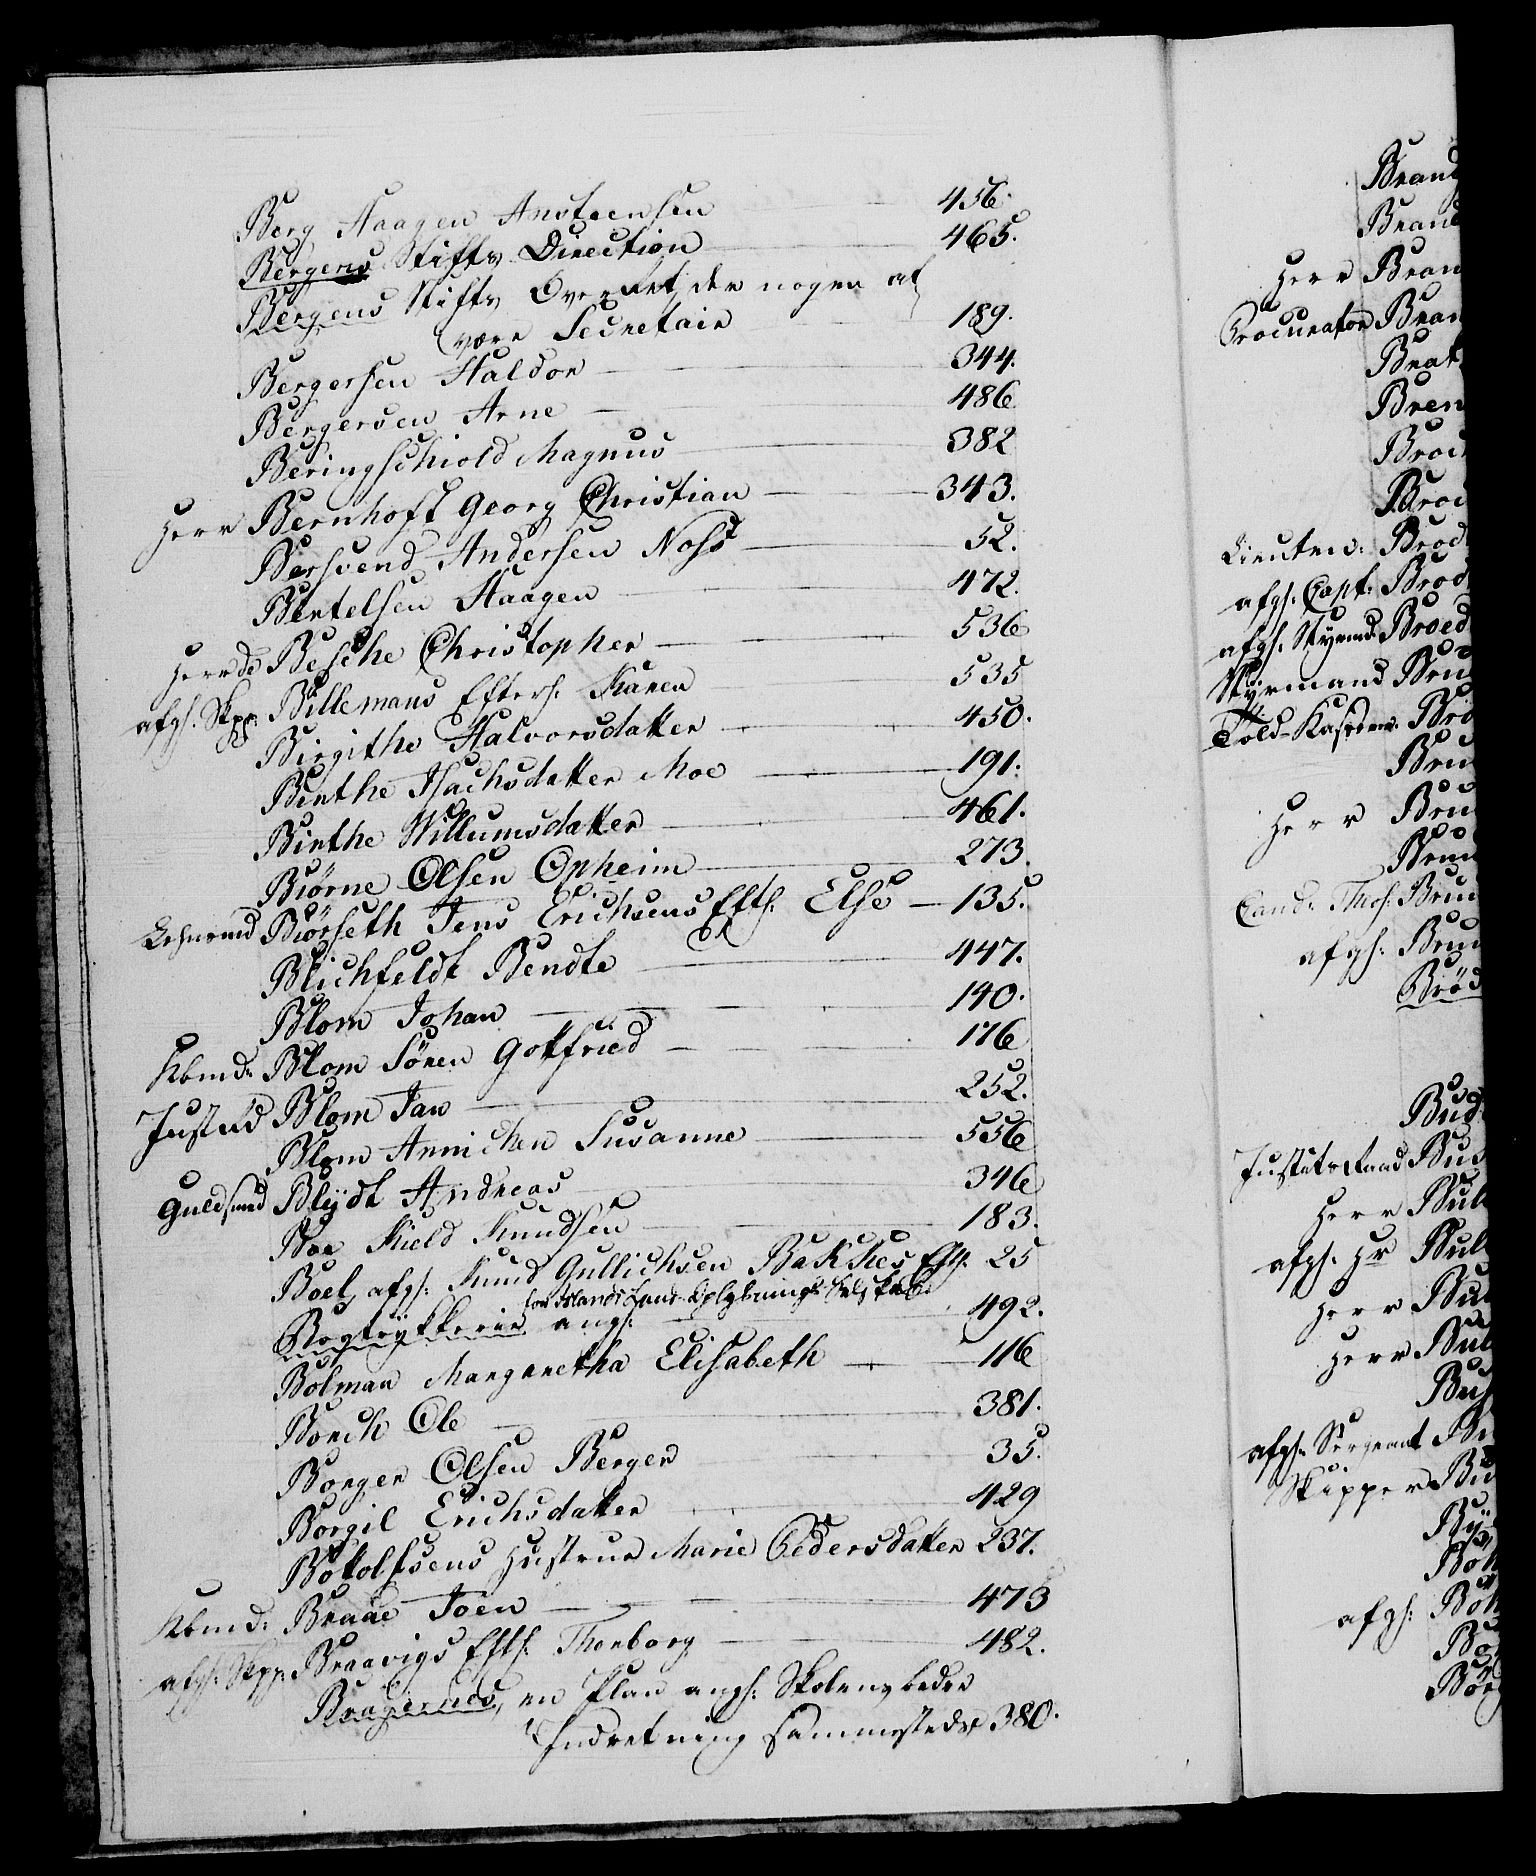 Berg Haagen Ansteensen 456.
Bergens Stifts Direction 465.
Bergens Stifts Overret, der nogen at
være Secretair 189.
Bergersen Haldor 344.
Bergersen Arne 486
Beringschiold Magnus 382
Herr Bernhoft Georg Christian 343.
Bersvend Andersen Noss 52.
Bertelsen Haagen 472.
Herr de Besche Christopher 536
afgs. Skpp. Billemans Efters. Karen 535
Birgithe Halvorsdatter 450.
Birthe Isachsdatter Moe 191.
Birthe Willumsdatter 461.
Biørne Olsen Opheim 273.
Lehnsmd Biørseth Jens Erichsens Eftl. Else 135.
Blichfeldt Bendte 447.
Blom Johan 140.
Kbmd. Blom Sören Gottfried 176
Justrd Blom Jan 252.
Blom Annichen Susanne 556
Guldsmd Blÿdt Andreas 346
Boe Kield Knudsen 183.
Boel, afgs. Knud Gullichsen Bakkes Eftl. 25
for Islands Lands-Oplysnings-Selskab.
Bogtrÿkkerie angs. 492.
Bolman Margaretha Elisabeth 116
Borch Ole 381.
Borger Olsen Berger 35.
Borgil Erichsdatter 429
Botolfsens Hustrue Marie Pedersdatter 237.
Kbmd. Braae Joen 473
afgs. Skpp. Braavigs Eftl. Thorborg 482.
Bragernes, en Plan angs. Skolens bedre
Indretning sammesteds 380.
Brand
Bran
Herr Bran
Procurator Bran
Brat
Bren
Broc
Broc
Lieuten. Brod
afgs. Capt. Brod
afgs. Styrmd. Broed
Styrmand Bru
Told-Kasserer. Bru
Bru
Herr Bru
Brun
Cand. Theol. Brun
afgs. Brun
Brød
Bud
Justitsraad Bu
Herr Bul
afgs. Hr Bul
Herr Bul
Herr Bul
Bu
afgs. Sergeant B
Skipper B
Bÿ
Bøh
afgs. Bøh
Bø
Børs